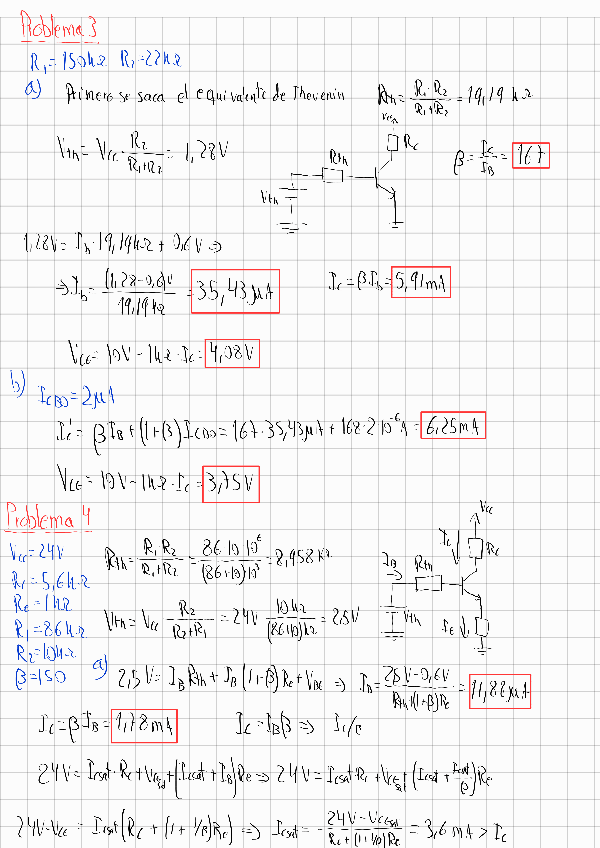 Problema 3
R₁=150kΩ R₂=22kΩ
a) Primero se saca el equivalente de Thevenin Rth = R₁·R₂/(R₁+R₂) = 19,19 kΩ
Vth = Vcc · R₂/(R₁+R₂) = 1,28V
Vcc
Rc
Rth
Vth
β = Ic/IB = 167
1,28V = Ib·19,19kΩ + 0,6V ⇒
⇒ Ib = (1,28-0,6)V/19,19kΩ = 35,43μA
Ic = β·Ib = 5,91mA
VCE = 10V - 1kΩ · Ic = 4,08V
b) ICBO = 2μA
I'c = βIB + (1+β)ICBO = 167·35,43μA + 168·2·10⁻⁶A = 6,25mA
VCE = 10V - 1kΩ·Ic = 3,75V
Problema 4
Vcc = 24V
Rc = 5,6kΩ
Re = 1kΩ
R₁ = 86kΩ
R₂ = 10kΩ
β = 150
Rth = R₁R₂/(R₁+R₂) = 86·10·10⁶/(86+10)10³ = 8,958 kΩ
Vth = Vcc R₂/(R₂+R₁) = 24V 10kΩ/(86+10)kΩ = 2,5V
Vcc
Ic
Rc
IB
Rth
Vth
IE
a) 2,5V = IB Rth + IB(1+β)Re + VBE ⇒ IB = (2,5V-0,6V)/(Rth+(1+β)Re) = 11,88μA
Ic = βIB = 1,78mA Ic = IBβ ⇒ Ic/β
24V = Icsat·Rc + VCEsat + (Icsat + IB)Re ⇒ 24V = Icsat·Rc + VCEsat + (Icsat + Icsat/β)Re
24V-VCE = Icsat(Rc + (1+1/β)Re) ⇒ Icsat = (24V-VCEsat)/(Rc+(1+1/β)Re) = 3,6mA > Ic